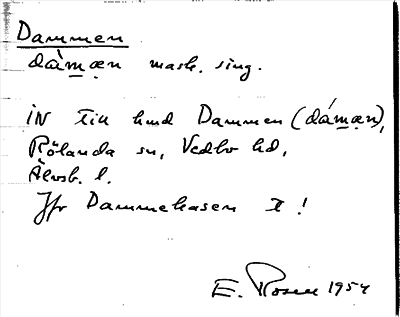 Dammen
dámæn mask. sing.
IN till hmd Dammen (dámæn),
Rölanda sn, Vedbo hd,
Älvsb. l.
Jfr Dammekasen t!
E. Rosell 1954